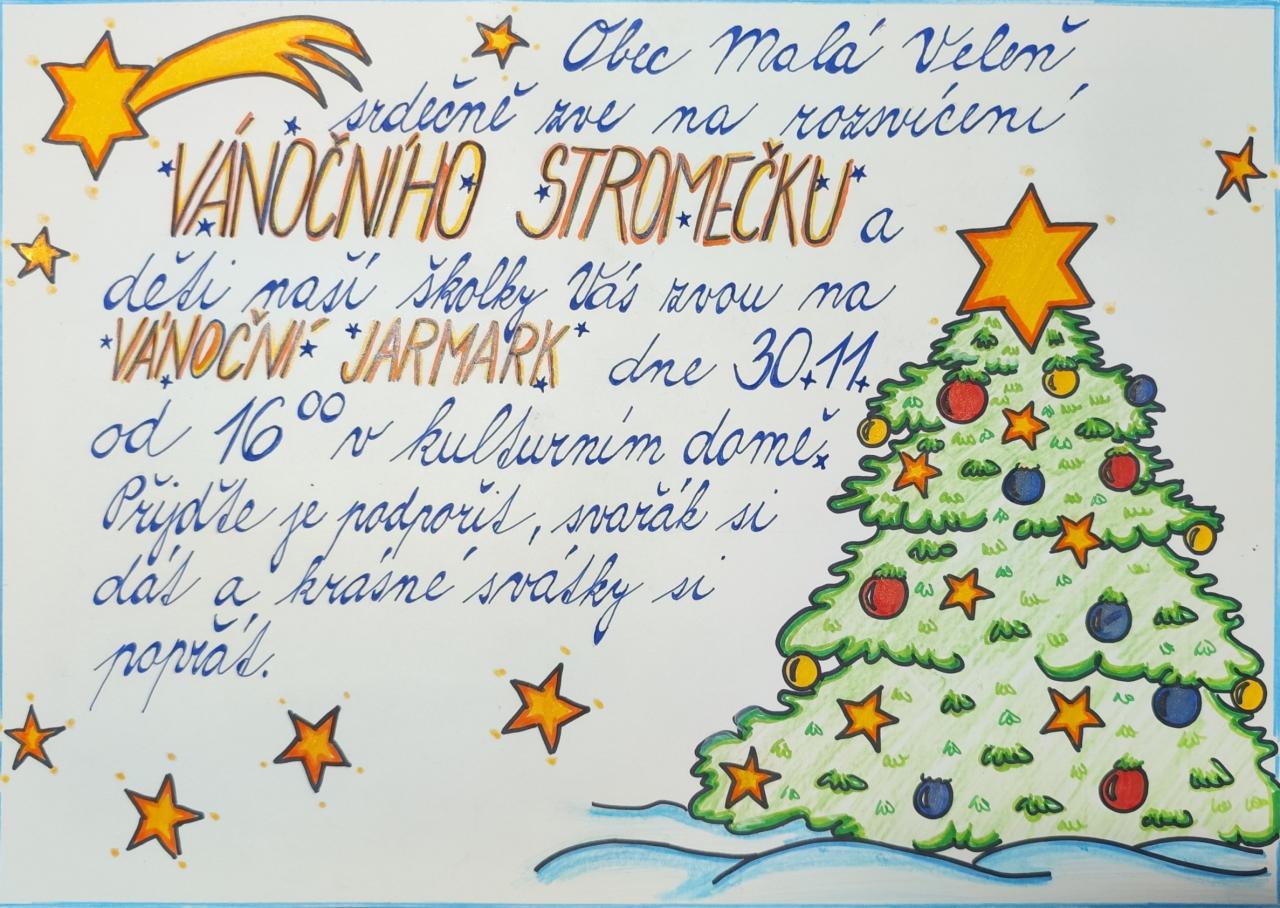 Obec Malá Veleň
srdečně zve na rozsvícení
VÁNOČNÍHO STROMEČKU a
děti naší školky Vás zvou na
VÁNOČNÍ JARMARK dne 30.11.
od 16⁰⁰ v kulturním domě.
Přijďte je podpořit, svařák si
dát a krásné svátky si
popřát.